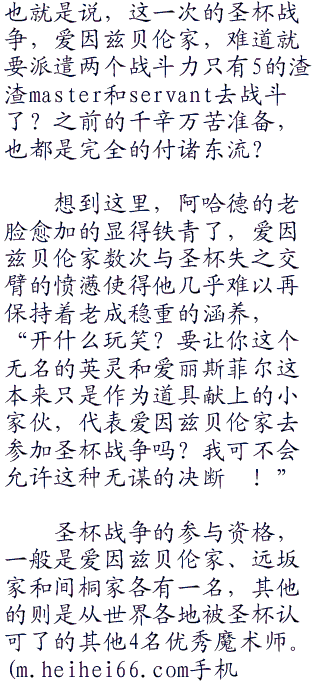 也就是说，这一次的圣杯战
争，爱因兹贝伦家，难道就
要派遣两个战斗力只有5的渣
渣master和servant去战斗
了？之前的千辛万苦准备，
也都是完全的付诸东流？
想到这里，阿哈德的老
脸愈加的显得铁青了，爱因
兹贝伦家数次与圣杯失之交
臂的愤懑使得他几乎难以再
保持着老成稳重的涵养，
“开什么玩笑？要让你这个
无名的英灵和爱丽斯菲尔这
本来只是作为道具献上的小
家伙，代表爱因兹贝伦家去
参加圣杯战争吗？我可不会
允许这种无谋的决断　！”
圣杯战争的参与资格，
一般是爱因兹贝伦家、远坂
家和间桐家各有一名，其他
的则是从世界各地被圣杯认
可了的其他4名优秀魔术师。
(m.heihei66.com手机